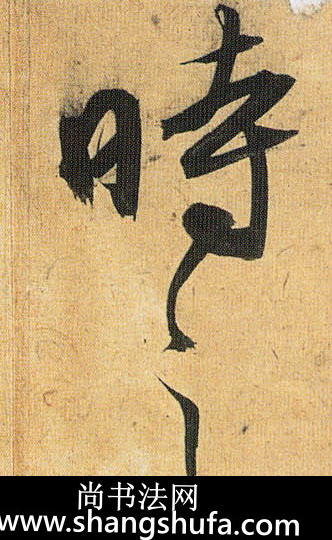 時
尚书法网
www.shangshufa.com